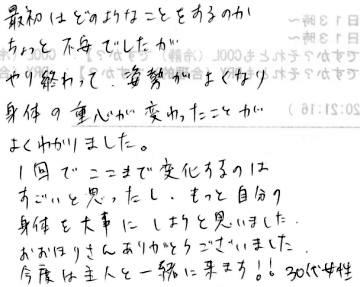 最初はどのようなことをするのか
ちょっと不安でしたが
やり終わって、姿勢がよくなり
身体の重心が変わったことが
よくわかりました。
1回でここまで変化するのは
すごいと思ったし、もっと自分の
身体を大事にしようと思いました.
おおほりさんありがとうございました
今度は主人と一緒に来ます!! 30代女性